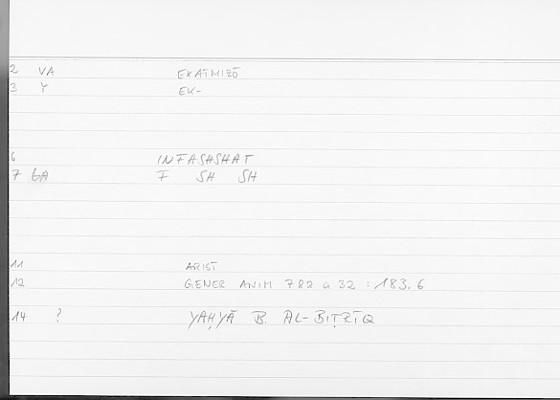 2 VA EKATMIZŌ
3 Y EK-
6 INFASHSHAT
7 F SH SH
11 ARIST
12 GENER ANIM 782 a 32 : 183.6
14 ? YAḤYĀ B. AL-BIṬRĪQ